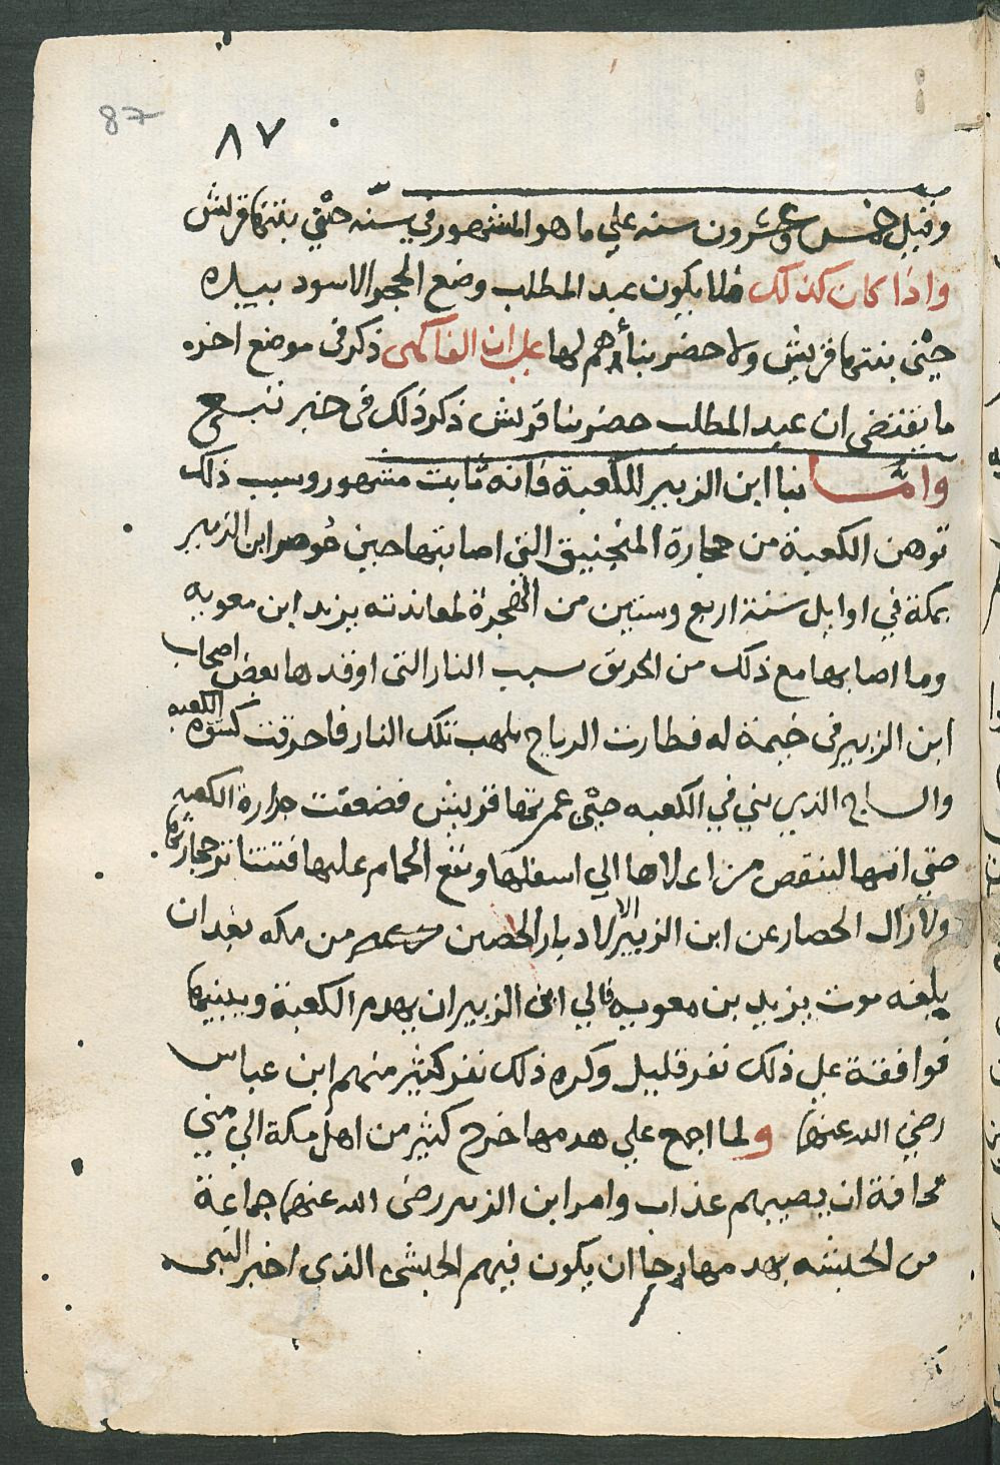 87
٨٧
وقيل خمس وعشرون سنه علي ما هو المشهور في سنه حتي بنتها قريش
واذا كان كذلك فلا يكون عبد المطلب وضع الحجر الاسود بيده
حيثي بنتها قريش ولا حضر بنأهم لها علي ان الفاكهى ذكر فى موضع اخره
ما يقتضى ان عبد المطلب حضر بنا قريش ذكر ذلك فى خبر تبع
وامَّا بنا ابن الزبير للكعبة فانه ثابت مشهور وسبب ذلك
توهن الكعبة من حجارة المنجنيق التي اصابتها حين حوصر ابن الزبير
بمكة في اوايل سنة اربع وستين من الهجرة لمعاندته يزيد ابن معويه
وما اصابها مع ذلك من الحريق سبب النار التى اوقدها بعض اصحاب
ابن الزبير فى خيمة له فطارت الرياح بلهب تلك النار فاحرقت كسوة الكعبه
والساج الذي بني في الكعبه حيثي عمرتها قريش فضعفت جدارة الكعبه
حتي انها لتنقص من اعلاها الي اسفلها وتقع الحمام عليها فتتناثر حجارتها
ولا زال الحصار عن ابن الزبير لادبار الحصين من مكه بعد ان
بلغه موت يزيد بن معويه فالي ابن الزبير ان يهدم الكعبة ويبنيها
فوافقة علي ذلك نفر قليل وكره ذلك نفر كثير منهم ابن عباس
رضي الله عنهما ولما اجمع علي هدمها خرج كثير من اهل مكة الي مني
مخافة ان يصيبهم عذاب وامر ابن الزبير رضى الله عنهما جماعة
من الحبشه بهدمها رجا ان يكون فيهم الحبشى الذي اخبر النبى